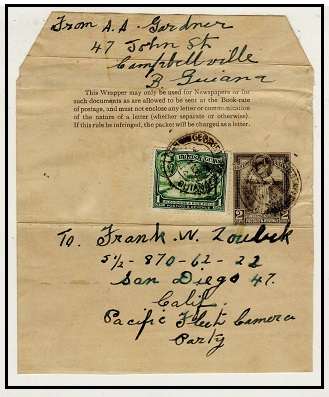 From A.A Gardner
47 John St
Campbellville
B Guiana
This Wrapper may only be used for Newspapers or for
such documents as are allowed to be sent at the Book-rate
of postage, and must not enclose any letter or communication
of the nature of a letter (whether separate or otherwise).
If this rule be infringed, the packet will be charged as a letter.
BRITISH GUIANA
1
POSTAGE & REVENUE
2 2
To. Frank. W. Zoubek
51/2 - 870 - 62 - 22
San Diego 47.
Calif.
Pacific Fleet Camera
Party